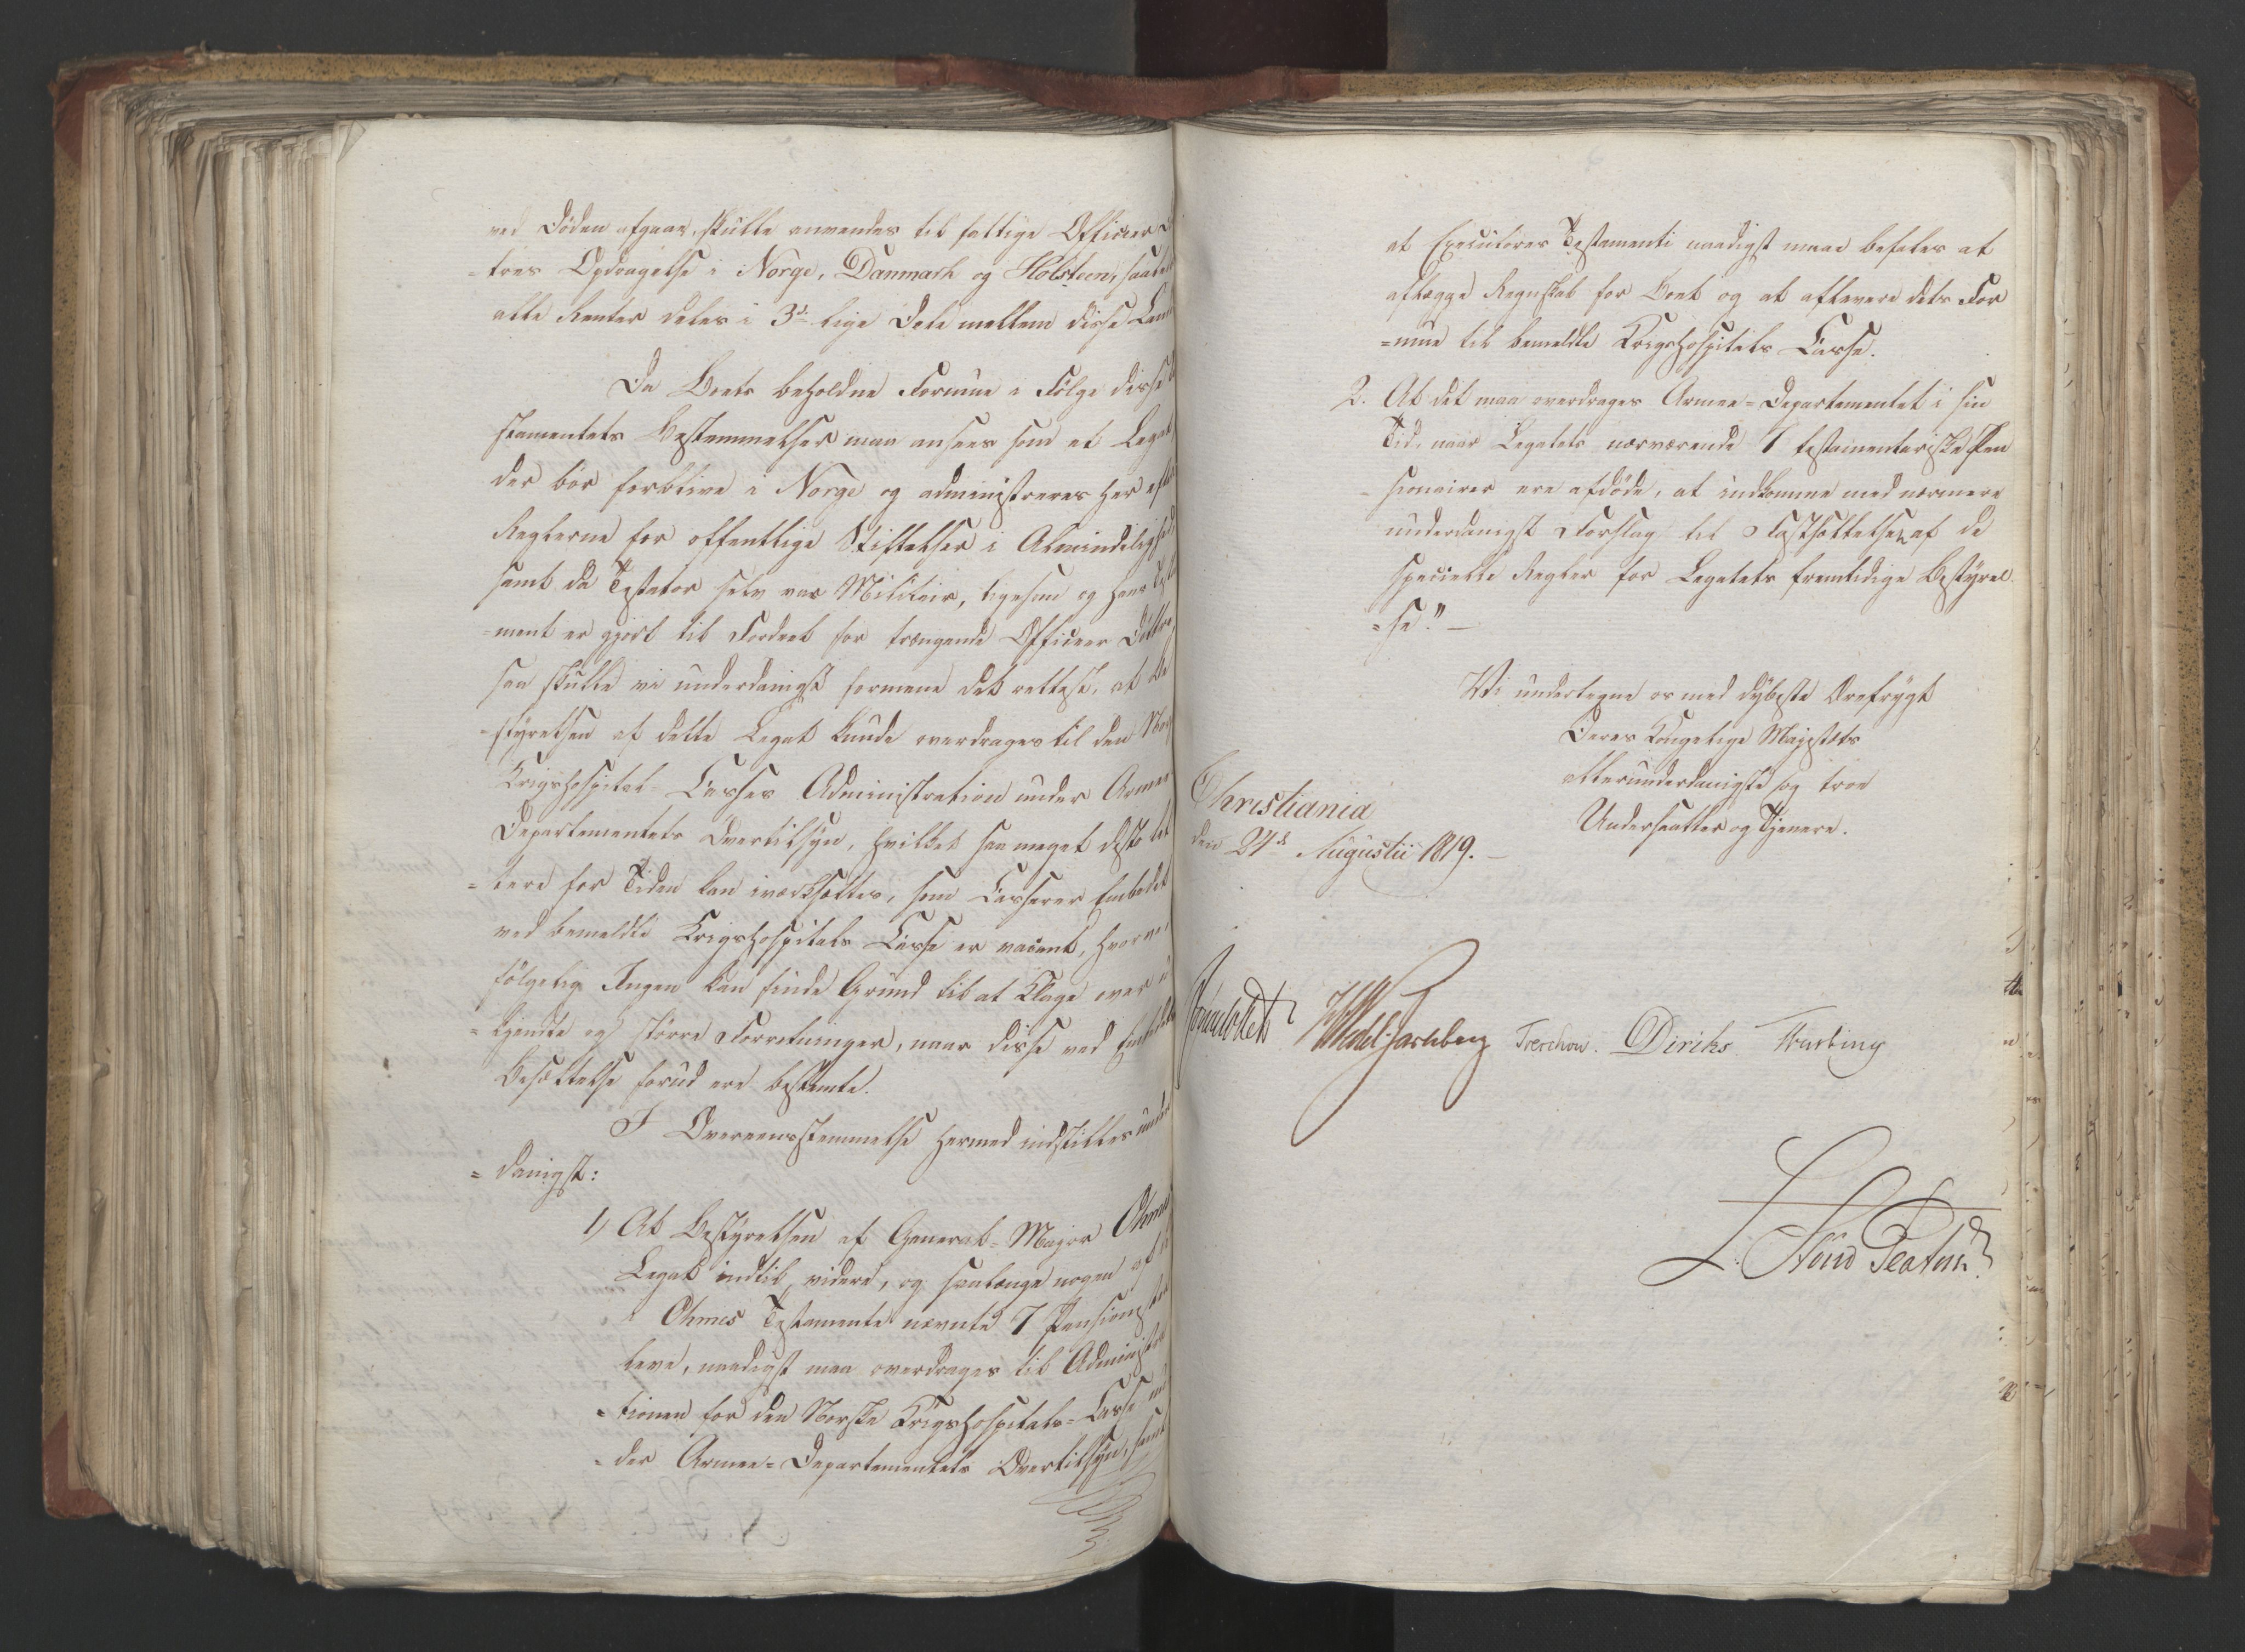 ved Døden afgaar, skulle anvendes til fattige Officeer D
=tres Opdragelse i Norge, Danmark og Holsteen, saaled
alle Renter deles i 3de lige Dele mellem disse Lan
Da Boets beholdne Formue i Følge disse
stamentets Bestemmelser maa ansees som et Legat
der bør forblive i Norge og administreres her efter
Reglerne for offentlige Stiftelser i Almindelighed
samt da Testator selv var Militair, ligesom og hans Testa
=ment er gjort til Fordeel for trængende Officeer Døttre
saa skulle vi underdanigst formene det rettest, at Be
=styrelsen af dette Legat kunde overdrages til den Nor
Krigshospital-Casses Administration under Armee
Departementets Overtilsyn, hvilket saa meget desto let
=tere for Tiden kan iværksættes, som Casserer Embedet
ved bemeldte Krigshospitals Casse er vacant, hvorved
følgelig Ingen kan finde Grund til at klage over u
=kjendte og større Forretninger, naar disse ved Embedets
Besættelse forud ere bestemte.
I Overeensstemmelse hermed indstilles under
=danigst:
1) At Bestyrelsen af General-Major Ohmes
Legat indtil videre, og saalænge nogen af de
i Ohmes Testamente nævnte 7 Pensionister
leve, naadigst maa overdrages til Administra
=tionen for den Norske Krigshospitals=Casse un
=der Armee=Departementets Overtilsyn, samt
at Executores Testamenti naadigst maae befales at
aflægge Regnskab for Boet og at aflevere dets For
=mue til bemeldte Krigshospitals Casse.
2. At det maa overdrages Armee=Departementet i sin
Tid, naar Legatets nærværende 7 testamentariske Pen
=sionairer ere afdøde, at indkomme med nærmere
underdanigst Forslag til Fastsættelsen af de
specielle Regler for Legatets fremtidige Bestyrel
=se."—
Vi undertegne os med dybeste Ærefrygt
Deres Kongelige Majestæts
allerunderdanigste og troe
Undersaatter og Tjenere.
Christiania
den 24de Augustii 1819.—
Sommerfeldt
Wedel Jarlsberg Treschow. Diriks Fasting